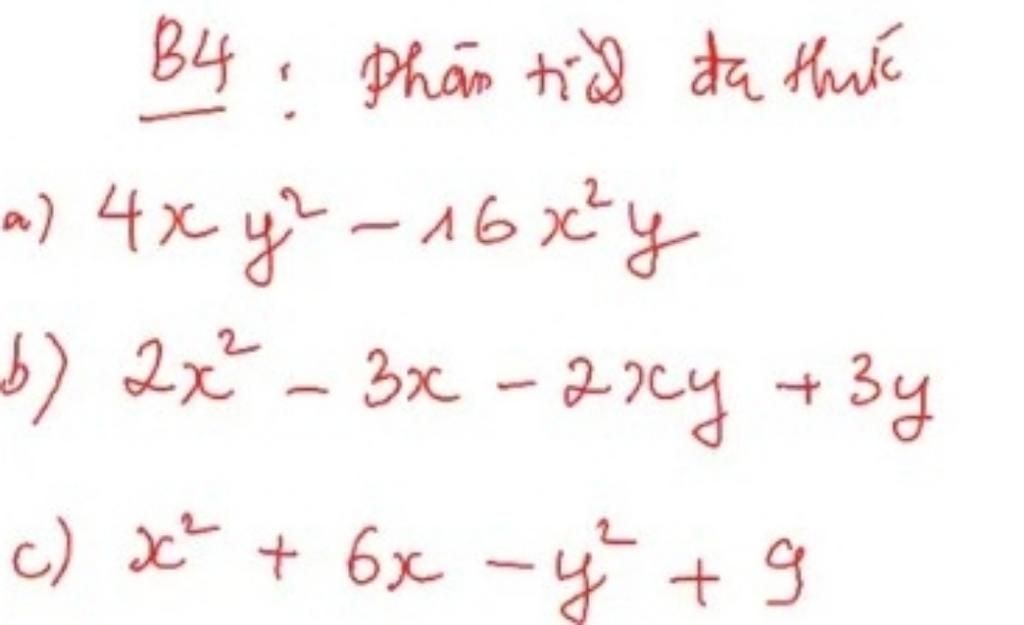 B4 : Phân tích đa thức
a) 4xy² - 16x²y
b) 2x² - 3x - 2xy + 3y
c) x² + 6x - y² + 9